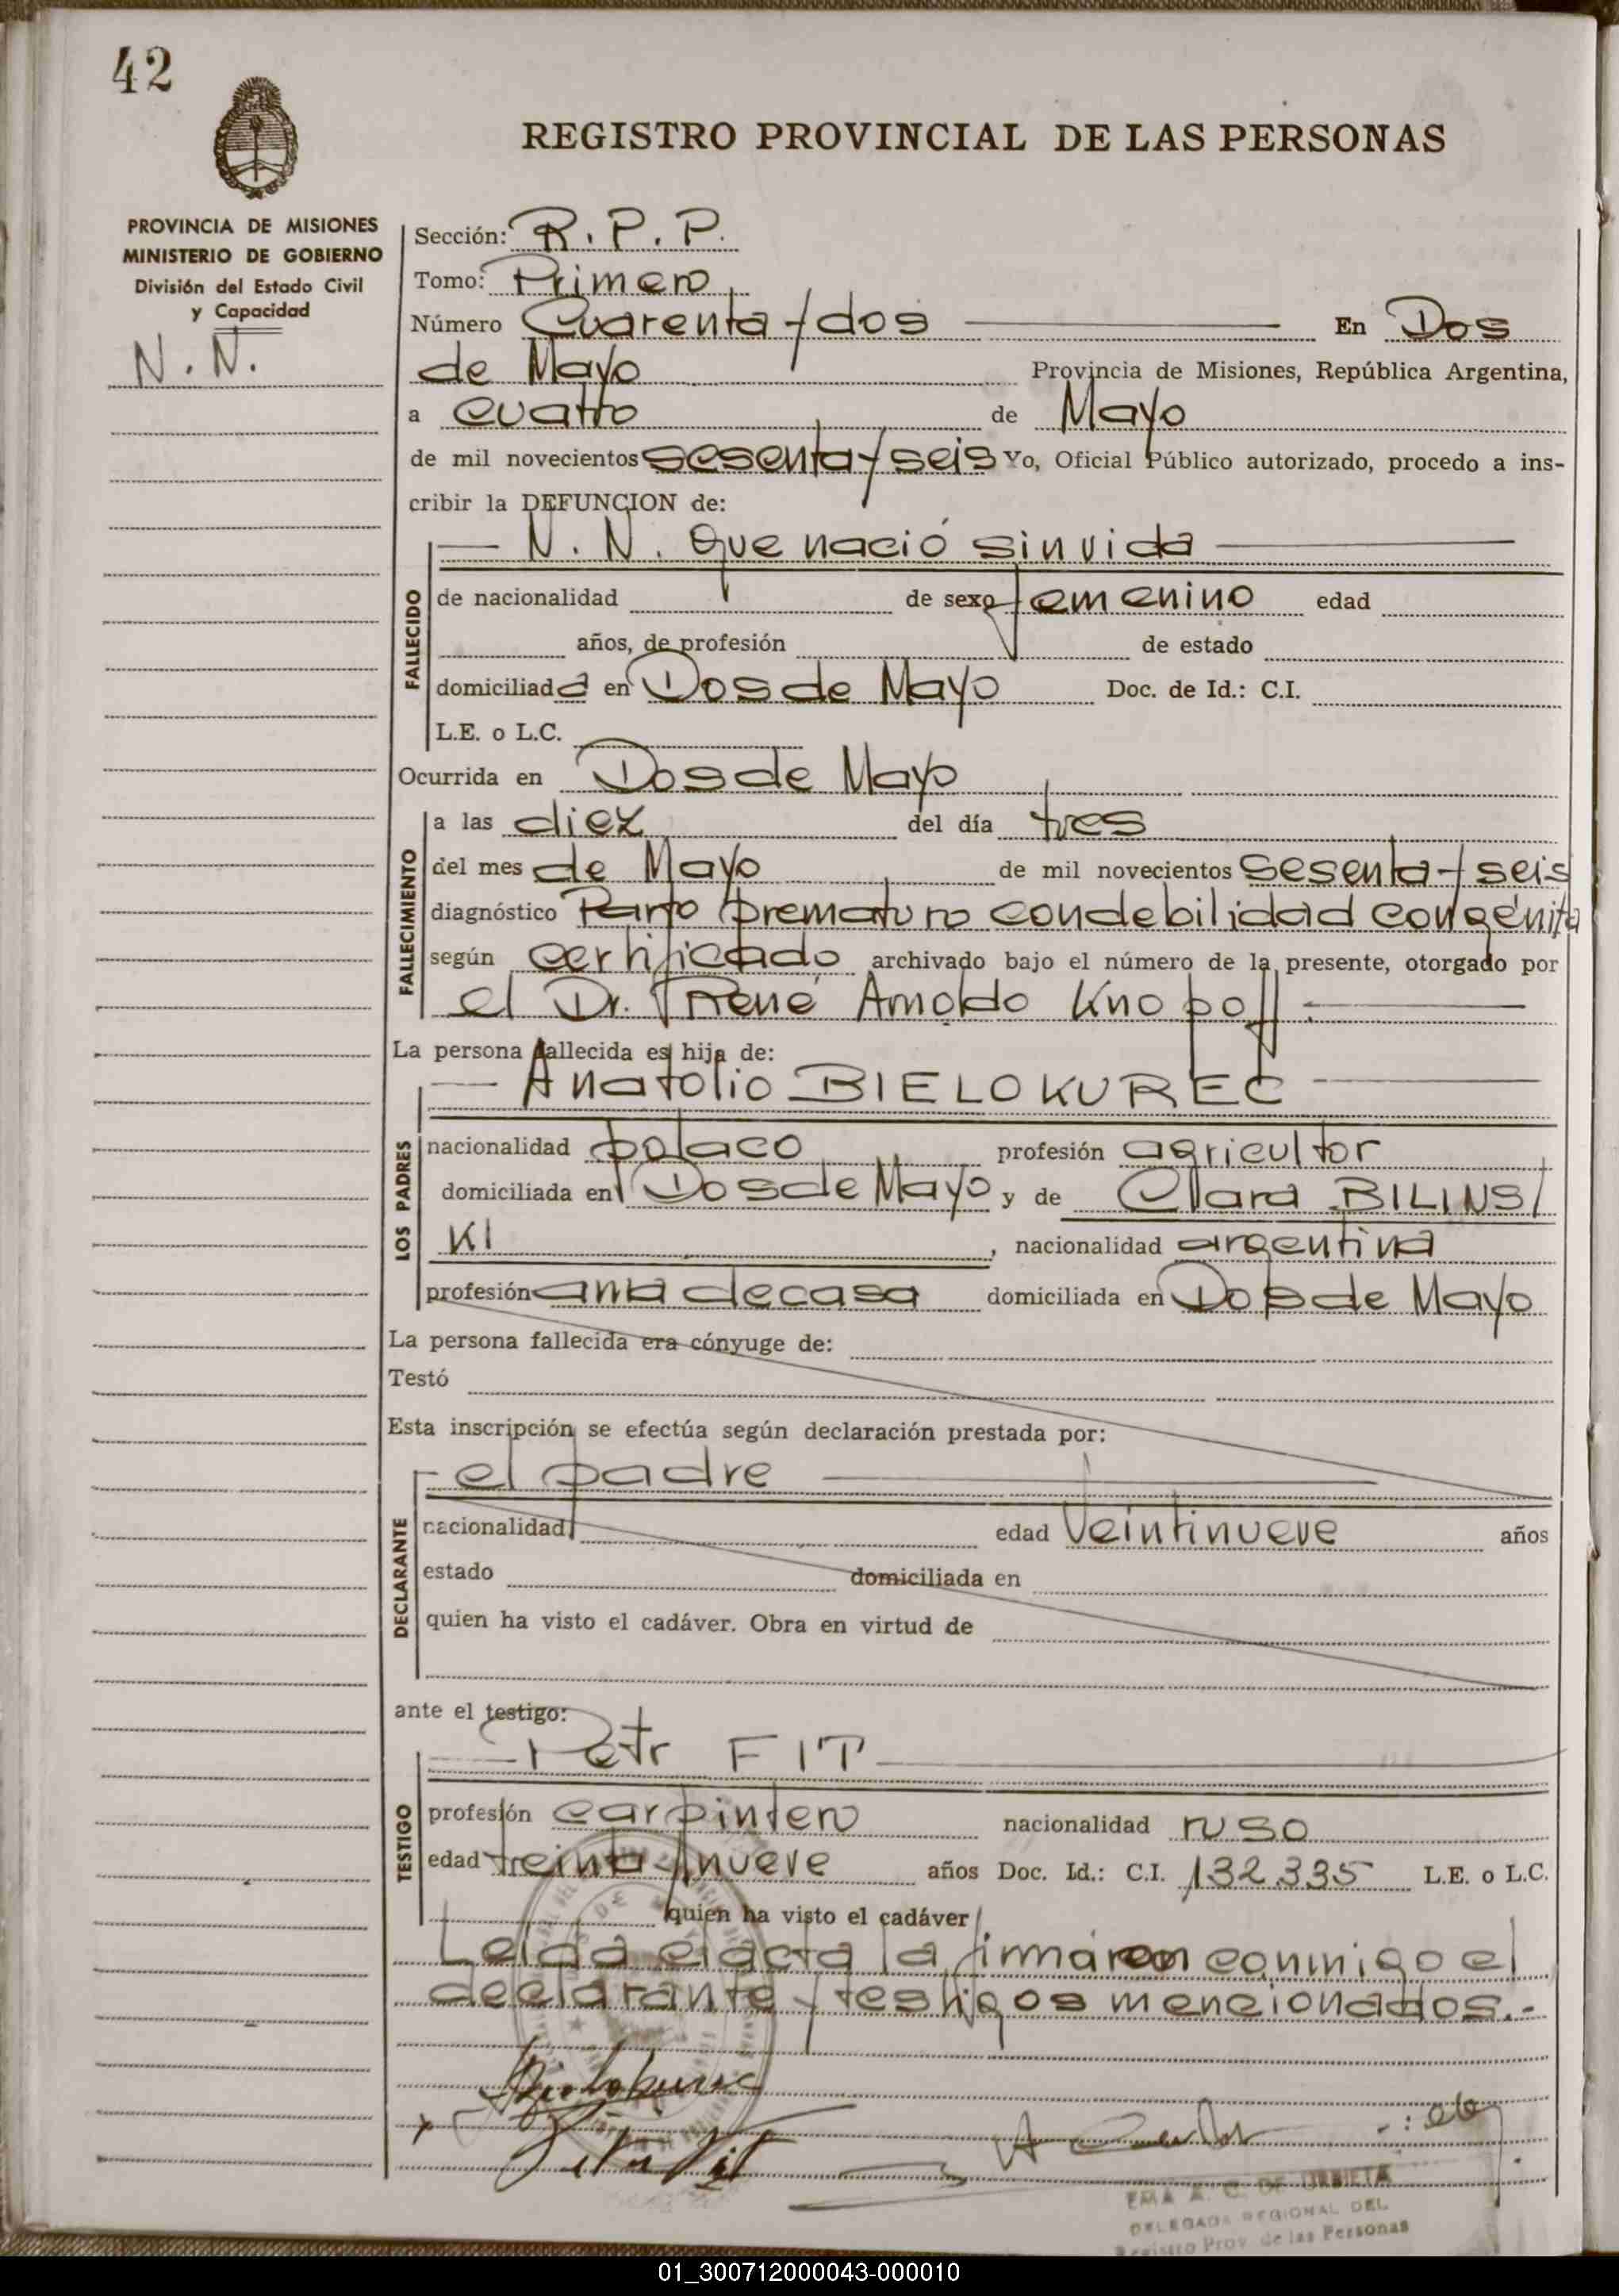 42
REGISTRO PROVINCIAL DE LAS PERSONAS
PROVINCIA DE MISIONES
MINISTERIO DE GOBIERNO
División del Estado Civil
y Capacidad
N. N.
Sección: R. P. P.
Tomo: Primero
Número Cuarenta y dos En Dos
de Mayo Provincia de Misiones, República Argentina,
a cuatro de Mayo
de mil novecientos sesenta y seis Yo, Oficial Público autorizado, procedo a ins-
cribir la DEFUNCION de:
N. N. que nació sin vida
FALLECIDO
de nacionalidad de sexo femenino edad
años, de profesión de estado
domiciliada en Dos de Mayo Doc. de Id.: C.I.
L.E. o L.C.
Ocurrida en Dos de Mayo
FALLECIMIENTO
a las diez del día tres
del mes de Mayo de mil novecientos sesenta y seis
diagnóstico Parto prematuro con debilidad congénita
según certificado archivado bajo el número de la presente, otorgado por
el Dr. René Arnoldo Knopoff.
La persona fallecida es hija de:
Anatolio BIELOKUREC
LOS PADRES
nacionalidad polaco profesión agricultor
domiciliada en Dos de Mayo y de Clara BILINS/
KI , nacionalidad argentina
profesión ama de casa domiciliada en Dos de Mayo
La persona fallecida era cónyuge de:
Testó
Esta inscripción se efectúa según declaración prestada por:
el padre
DECLARANTE
nacionalidad edad veintinueve años
estado domiciliada en
quien ha visto el cadáver. Obra en virtud de
ante el testigo:
Petr FIT
TESTIGO
profesión carpintero nacionalidad ruso
edad treinta y nueve años Doc. Id.: C.I. 132.335 L.E. o L.C.
quien ha visto el cadáver
Leida el acta la firmaron conmigo el
declarante y testigos mencionados.-
EMA A. C. DE URBIETA
DELEGADA REGIONAL DEL
Registro Prov. de las Personas
01_300712000043-000010